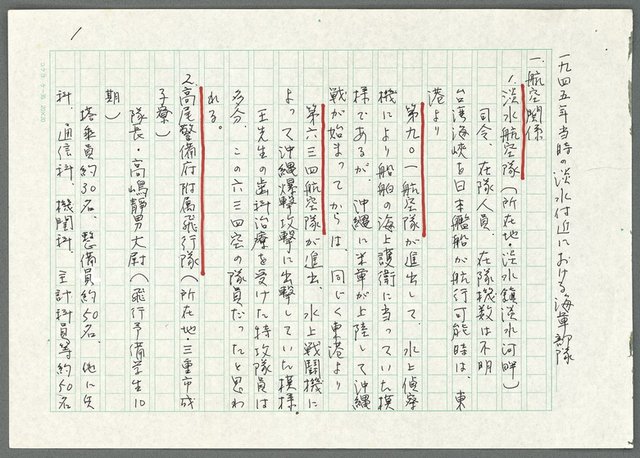 一九四五年当時の淡水付近における海軍部隊
一、航空関係
1、淡水航空隊（所在地・淡水鎮淡水河畔）
司令、在隊人員、在隊機数は不明
台湾海峡を日本艦船が航行可能時は、東
港より
第九〇一航空隊が進出して、水上偵察
機により船舶の海上護衛に当っていた模
様であるが、沖縄に米軍が上陸して沖縄
戦が始まってからは、同じく東港より
第六三四航空隊が進出、水上戦闘機に
よって沖縄爆撃攻撃に出撃していた模様。
王先生の歯科治療を受けた特攻隊員は
多分、この六三四空の隊員だったと思わ
れる。
2、高尾警備府附属飛行隊（所在地・三重市成
子寮）
隊長・高嶋静男大尉（飛行予備学生10
期）
搭乗員約30名、整備員約50名、他に兵
科、通信科、機関科、主計科員等約50名
1